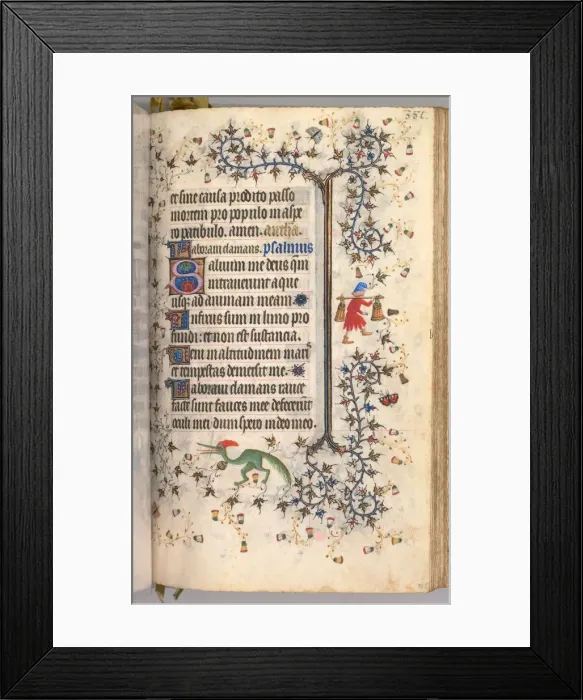 351.
et sine causa prodito passo
mortem pro populo in aspe
ro patibulo. amen. antha.
Laboraui clamans. psalmus
Saluum me deus qm̄
intrauerunt aque
usq; ad animam meam
Infixus sum in limo pro
fundi: et non est sustancia.
Ueni in altitudinem maris
et tempestas demersit me.
Laboraui clamans rauce
facte sunt fauces mee defecerūt
oculi mei dum spero in deo meo.